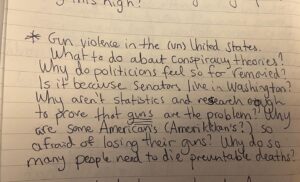 * Gun violence in the (un) United States.
What to do about conspiracy theories?
Why do politicians feel so far removed?
Is it because senators live in Washington?
Why aren't statistics and research enough
to prove that guns are the problem? Why
are some Americans (Amerikkkan's?) so
afraid of losing their guns? Why do so
many people need to die preventable deaths?